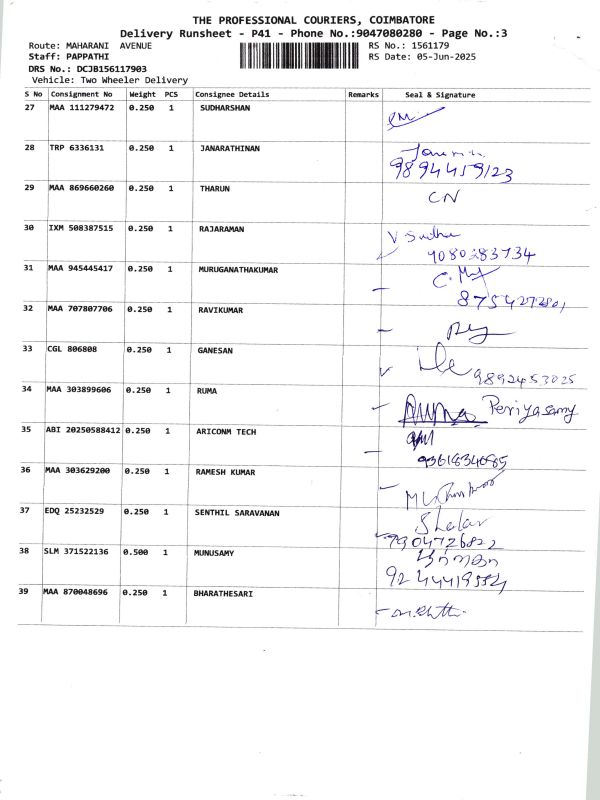 THE PROFESSIONAL COURIERS, COIMBATORE
Delivery Runsheet - P41 - Phone No.:9047080280 - Page No.:3
Route: MAHARANI AVENUE RS No.: 1561179
Staff: PAPPATHI RS Date: 05-Jun-2025
DRS No.: DCJB156117903
Vehicle: Two Wheeler Delivery
S No Consignment No Weight PCS Consignee Details Remarks Seal & Signature
27 MAA 111279472 0.250 1 SUDHARSHAN
28 TRP 6336131 0.250 1 JANARATHINAN
9894459123
29 MAA 869660260 0.250 1 THARUN CN
30 IXM 508387515 0.250 1 RAJARAMAN V Sudha
9080283734
31 MAA 945445417 0.250 1 MURUGANATHAKUMAR
8754272801
32 MAA 707807706 0.250 1 RAVIKUMAR
33 CGL 806808 0.250 1 GANESAN
9892453025
34 MAA 303899606 0.250 1 RUMA Periyasamy
35 ABI 20250588412 0.250 1 ARICONM TECH
9361834085
36 MAA 303629200 0.250 1 RAMESH KUMAR
37 EDQ 25232529 0.250 1 SENTHIL SARAVANAN
7904726822
38 SLM 371522136 0.500 1 MUNUSAMY
39 MAA 870048696 0.250 1 BHARATHESARI